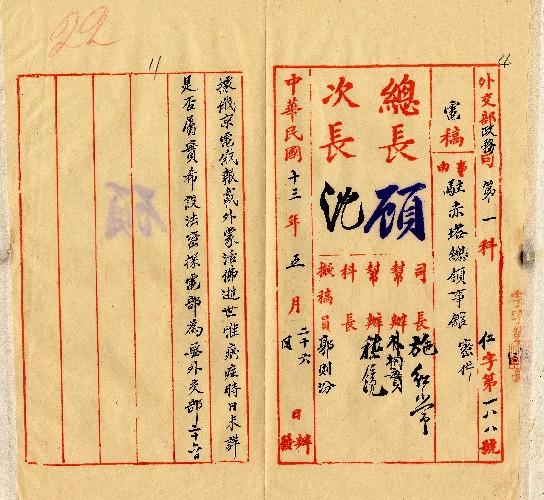 外交部政務司第一科 仁字第一八八號
電稿
事由 駐赤塔總領事館密件
總長 顧
次長 沈
司長 施紹常
幫辦
幫辦
科長
擬稿員 郭則汾
中華民國十三年五月二十六日辦
據俄京電俄報載外蒙活佛逝世惟病症時日未詳
是否屬實希設法密探電部為要外交部二十六日
顧
22